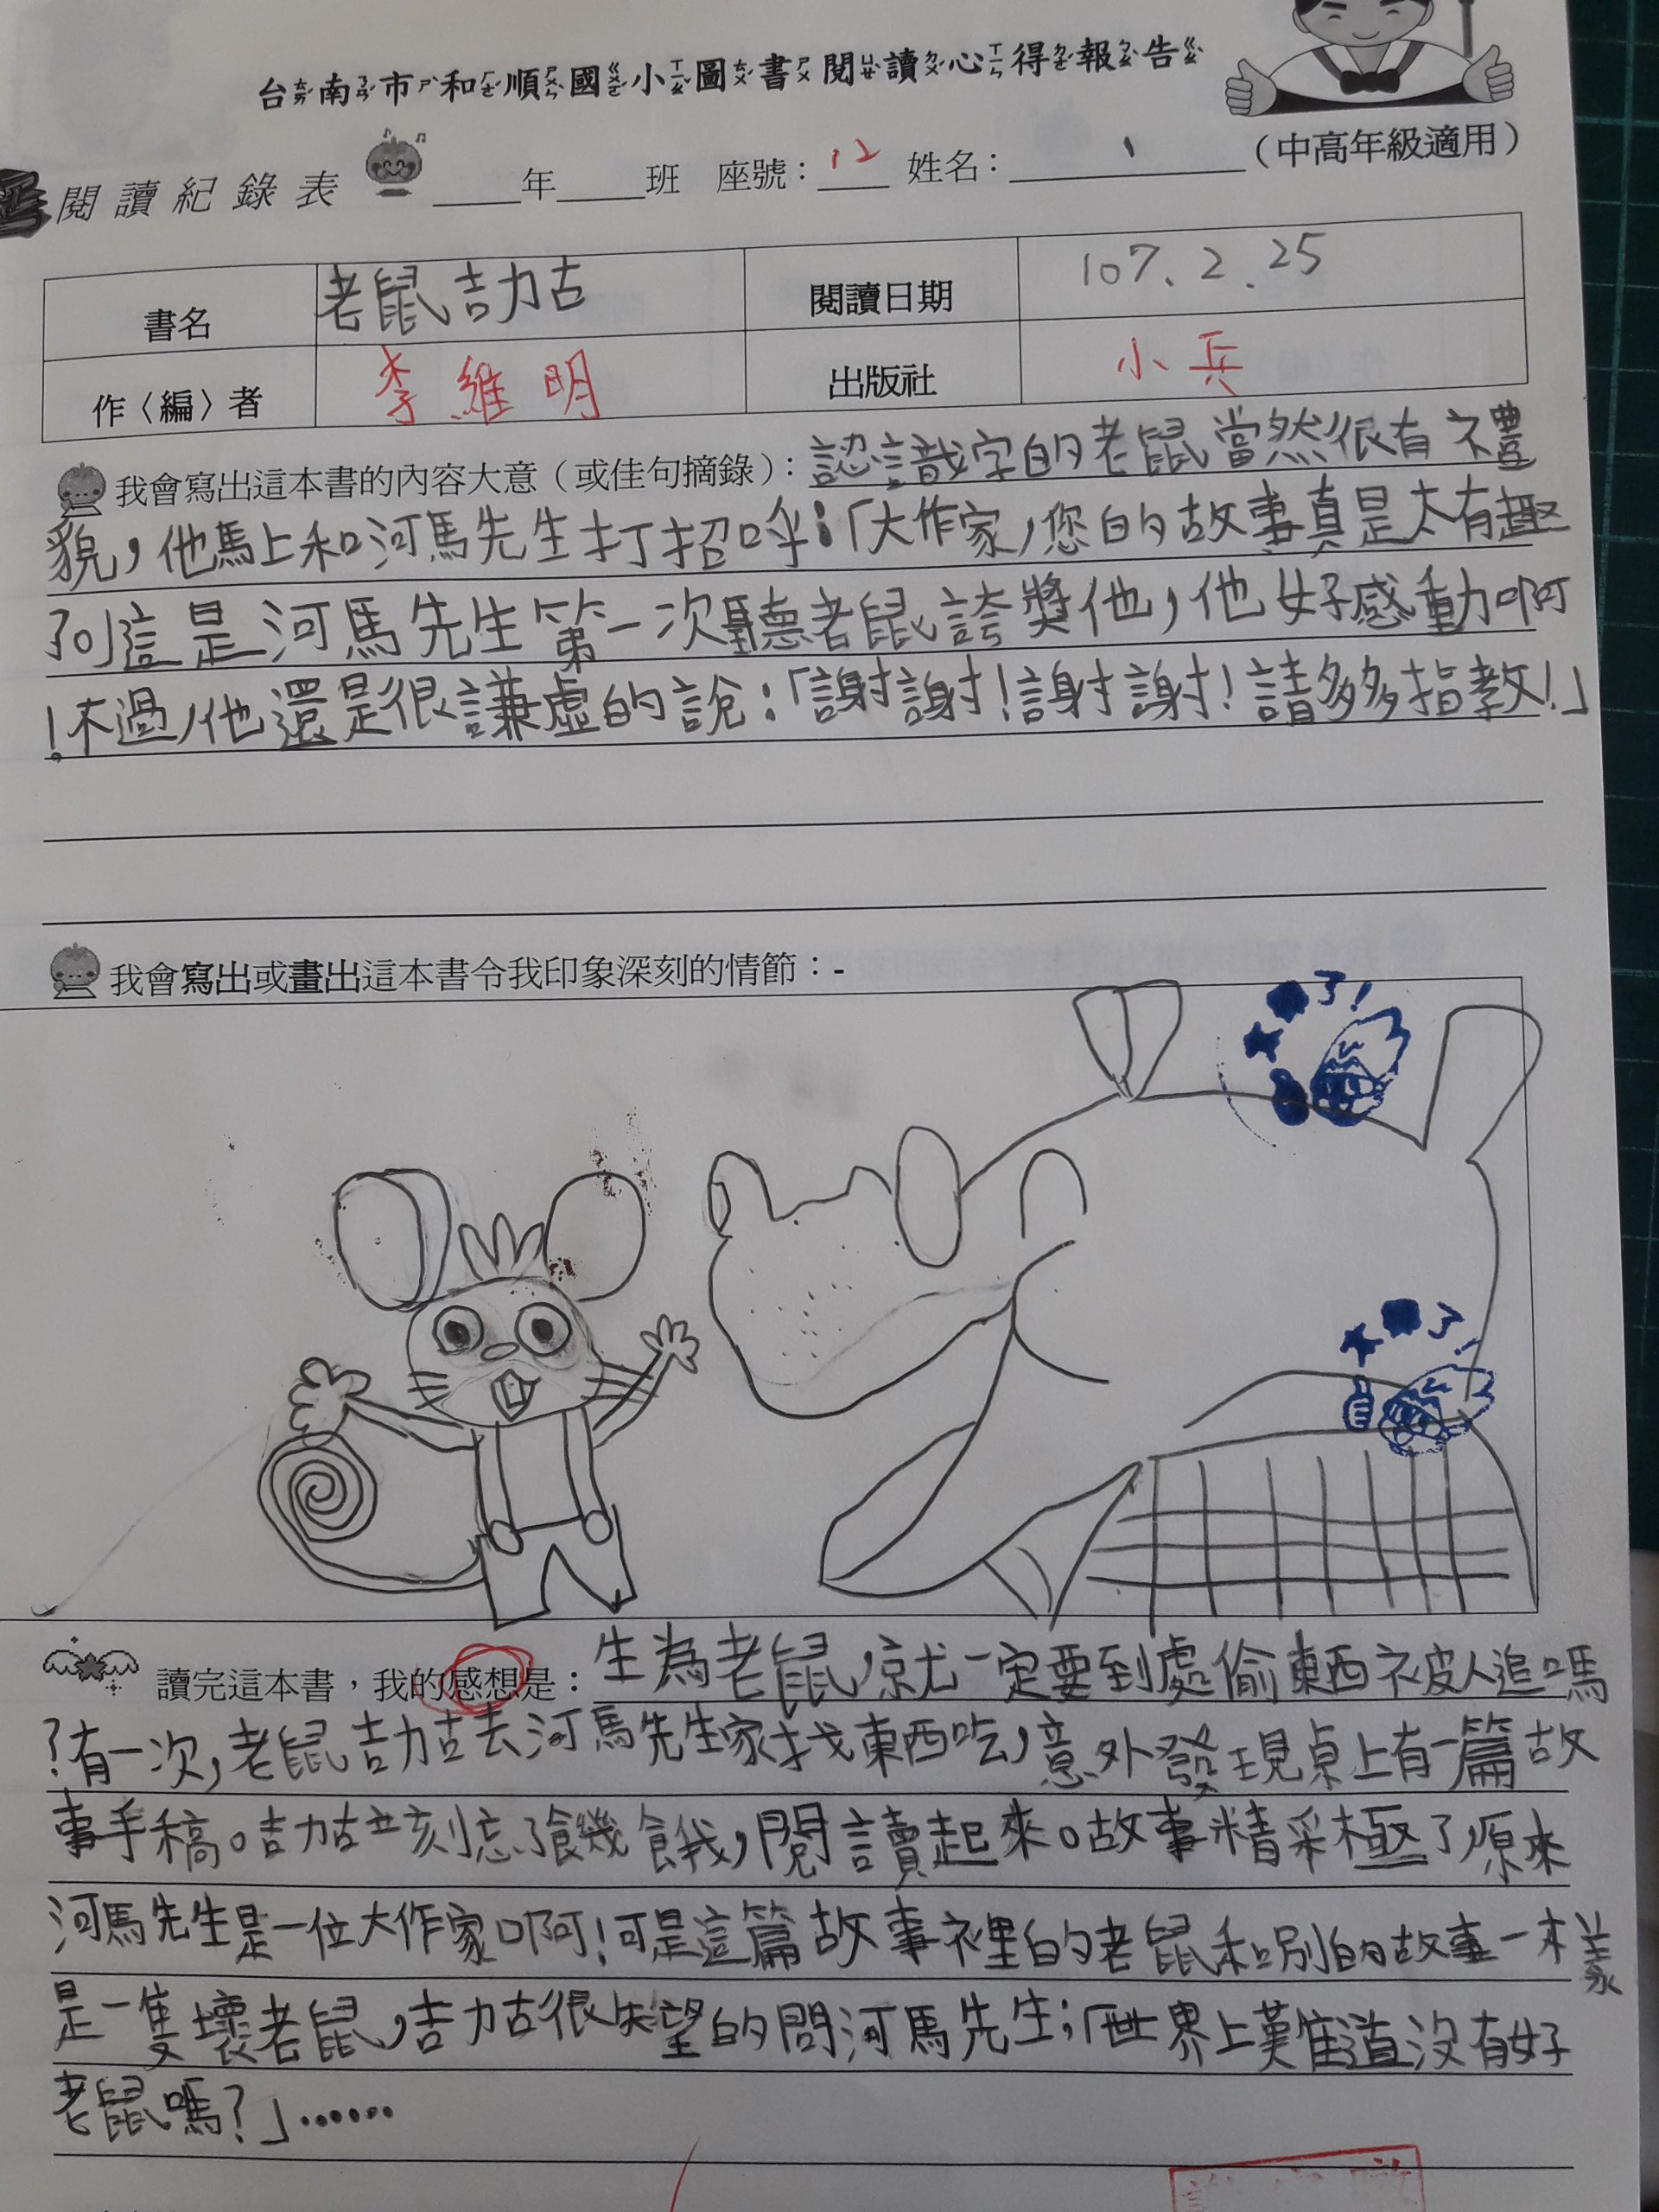 台南市和順國小圖書閱讀心得報告
閱讀紀錄表 ____年____班 座號：12 姓名：________（中高年級適用）
書名 老鼠吉力古 閱讀日期 107.2.25
作〈編〉者 李維明 出版社 小兵
我會寫出這本書的內容大意（或佳句摘錄）：認識字的老鼠當然很有禮
貌，他馬上和河馬先生打招呼：「大作家，您的故事真是太有趣
了！」這是河馬先生第一次聽老鼠誇獎他，他好感動啊
！不過，他還是很謙虛的說：「謝謝！謝謝！請多多指教！」
我會寫出或畫出這本書令我印象深刻的情節：-
了！
了！
讀完這本書，我的感想是：生為老鼠，就一定要到處偷東西被人追嗎
？有一次，老鼠吉力古去河馬先生家找東西吃，意外發現桌上有一篇故
事手稿。吉力古立刻忘了飢餓，閱讀起來。故事精采極了，原來
河馬先生是一位大作家啊！可是這篇故事裡的老鼠和別的故事一樣
是一隻壞老鼠，吉力古很失望的問河馬先生；「世界上難道沒有好
老鼠嗎？」……